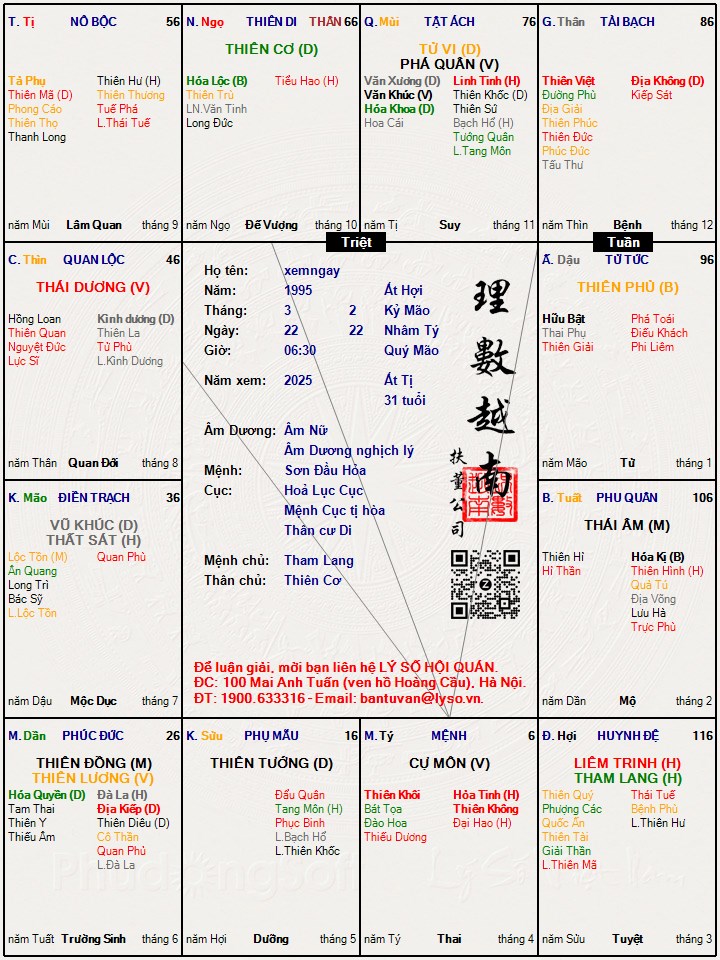 T. Tị NÔ BỘC 56
Tả Phụ Thiên Hư (H)
Thiên Mã (D) Thiên Thương
Phong Cáo Tuế Phá
Thiên Thọ L.Thái Tuế
Thanh Long
năm Mùi Lâm Quan tháng 9
N. Ngọ THIÊN DI THÂN 66
THIÊN CƠ (D)
Hóa Lộc (B) Tiểu Hao (H)
Thiên Trù
LN.Văn Tinh
Long Đức
năm Ngọ Đế Vượng tháng 10
Q. Mùi TẬT ÁCH 76
TỬ VI (D)
PHÁ QUÂN (V)
Văn Xương (D) Linh Tinh (H)
Văn Khúc (V) Thiên Khốc (D)
Hóa Khoa (D) Thiên Sứ
Hoa Cái Bạch Hổ (H)
Tướng Quân
L.Tang Môn
năm Tị Suy tháng 11
G. Thân TÀI BẠCH 86
Thiên Việt Địa Không (D)
Đường Phù Kiếp Sát
Địa Giải
Thiên Phúc
Thiên Đức
Phúc Đức
Tấu Thư
năm Thìn Bệnh tháng 12
Triệt
Tuần
C. Thìn QUAN LỘC 46
THÁI DƯƠNG (V)
Hồng Loan Kình dương (D)
Thiên Quan Thiên La
Nguyệt Đức Tử Phù
Lực Sĩ L.Kình Dương
năm Thân Quan Đới tháng 8
Họ tên: xemngay
Năm: 1995 Ất Hợi
Tháng: 3 2 Kỷ Mão
Ngày: 22 22 Nhâm Tý
Giờ: 06:30 Quý Mão
Năm xem: 2025 Ất Tị
31 tuổi
Âm Dương: Âm Nữ
Âm Dương nghịch lý
Mệnh: Sơn Đầu Hỏa
Cục: Hoả Lục Cục
Mệnh Cục tị hòa
Thân cư Di
Mệnh chủ: Tham Lang
Thân chủ: Thiên Cơ
理數越南
扶董公司
Để luận giải, mời bạn liên hệ LÝ SỐ HỘI QUÁN.
ĐC: 100 Mai Anh Tuấn (ven hồ Hoàng Cầu), Hà Nội.
ĐT: 1900.633316 - Email: bantuvan@lyso.vn.
Ấ. Dậu TỬ TỨC 96
THIÊN PHỦ (B)
Hữu Bật Phá Toái
Thai Phụ Điếu Khách
Thiên Giải Phi Liêm
năm Mão Tử tháng 1
K. Mão ĐIỀN TRẠCH 36
VŨ KHÚC (D)
THẤT SÁT (H)
Lộc Tồn (M) Quan Phù
Ân Quang
Long Trì
Bác Sỹ
L.Lộc Tồn
năm Dậu Mộc Dục tháng 7
B. Tuất PHU QUÂN 106
THÁI ÂM (M)
Thiên Hỉ Hóa Kị (B)
Hỉ Thần Thiên Hình (H)
Quả Tú
Địa Võng
Lưu Hà
Trực Phù
năm Dần Mộ tháng 2
M. Dần PHÚC ĐỨC 26
THIÊN ĐỒNG (M)
THIÊN LƯƠNG (V)
Hóa Quyền (D) Đà La (H)
Tam Thai Địa Kiếp (D)
Thiên Y Thiên Diêu (D)
Thiếu Âm Cô Thần
Quan Phủ
L.Đà La
năm Tuất Trường Sinh tháng 6
K. Sửu PHỤ MẪU 16
THIÊN TƯỚNG (D)
Đẩu Quân
Tang Môn (H)
Phục Binh
L.Bạch Hổ
L.Thiên Khốc
năm Hợi Dưỡng tháng 5
M. Tý MỆNH 6
CỰ MÔN (V)
Thiên Khôi Hỏa Tinh (H)
Bát Tọa Thiên Không
Đào Hoa Đại Hao (H)
Thiếu Dương
năm Tý Thai tháng 4
Đ. Hợi HUYNH ĐỆ 116
LIÊM TRINH (H)
THAM LANG (H)
Thiên Quý Thái Tuế
Phượng Các Bệnh Phù
Quốc Ấn L.Thiên Hư
Thiên Tài
Giải Thần
L.Thiên Mã
năm Sửu Tuyệt tháng 3